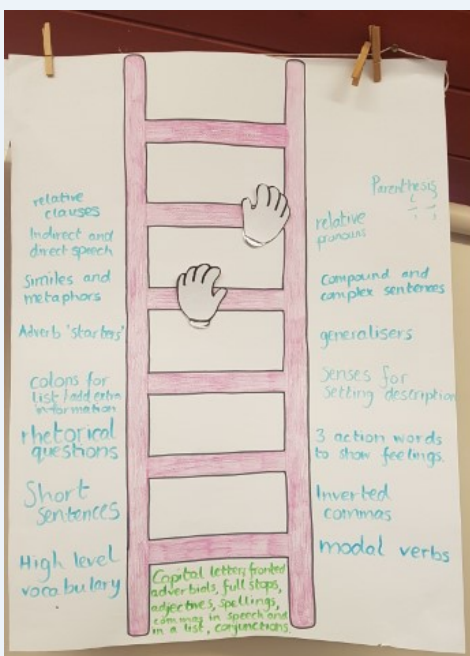 relative
clauses
Indirect and
direct speech
Similes and
metaphors
Adverb 'starters'
colons for
list/add extra
information
rhetorical
questions
Short
sentences
High level
vocabulary
Parenthesis
( )
, ,
relative
pronouns
Compound and
complex sentences
generalisers
Senses for
setting description
3 action words
to show feelings.
Inverted
commas
modal verbs
Capital letter, fronted
adverbials, full stops,
adjectives, spellings,
commas in speech and
in a list, conjunctions.